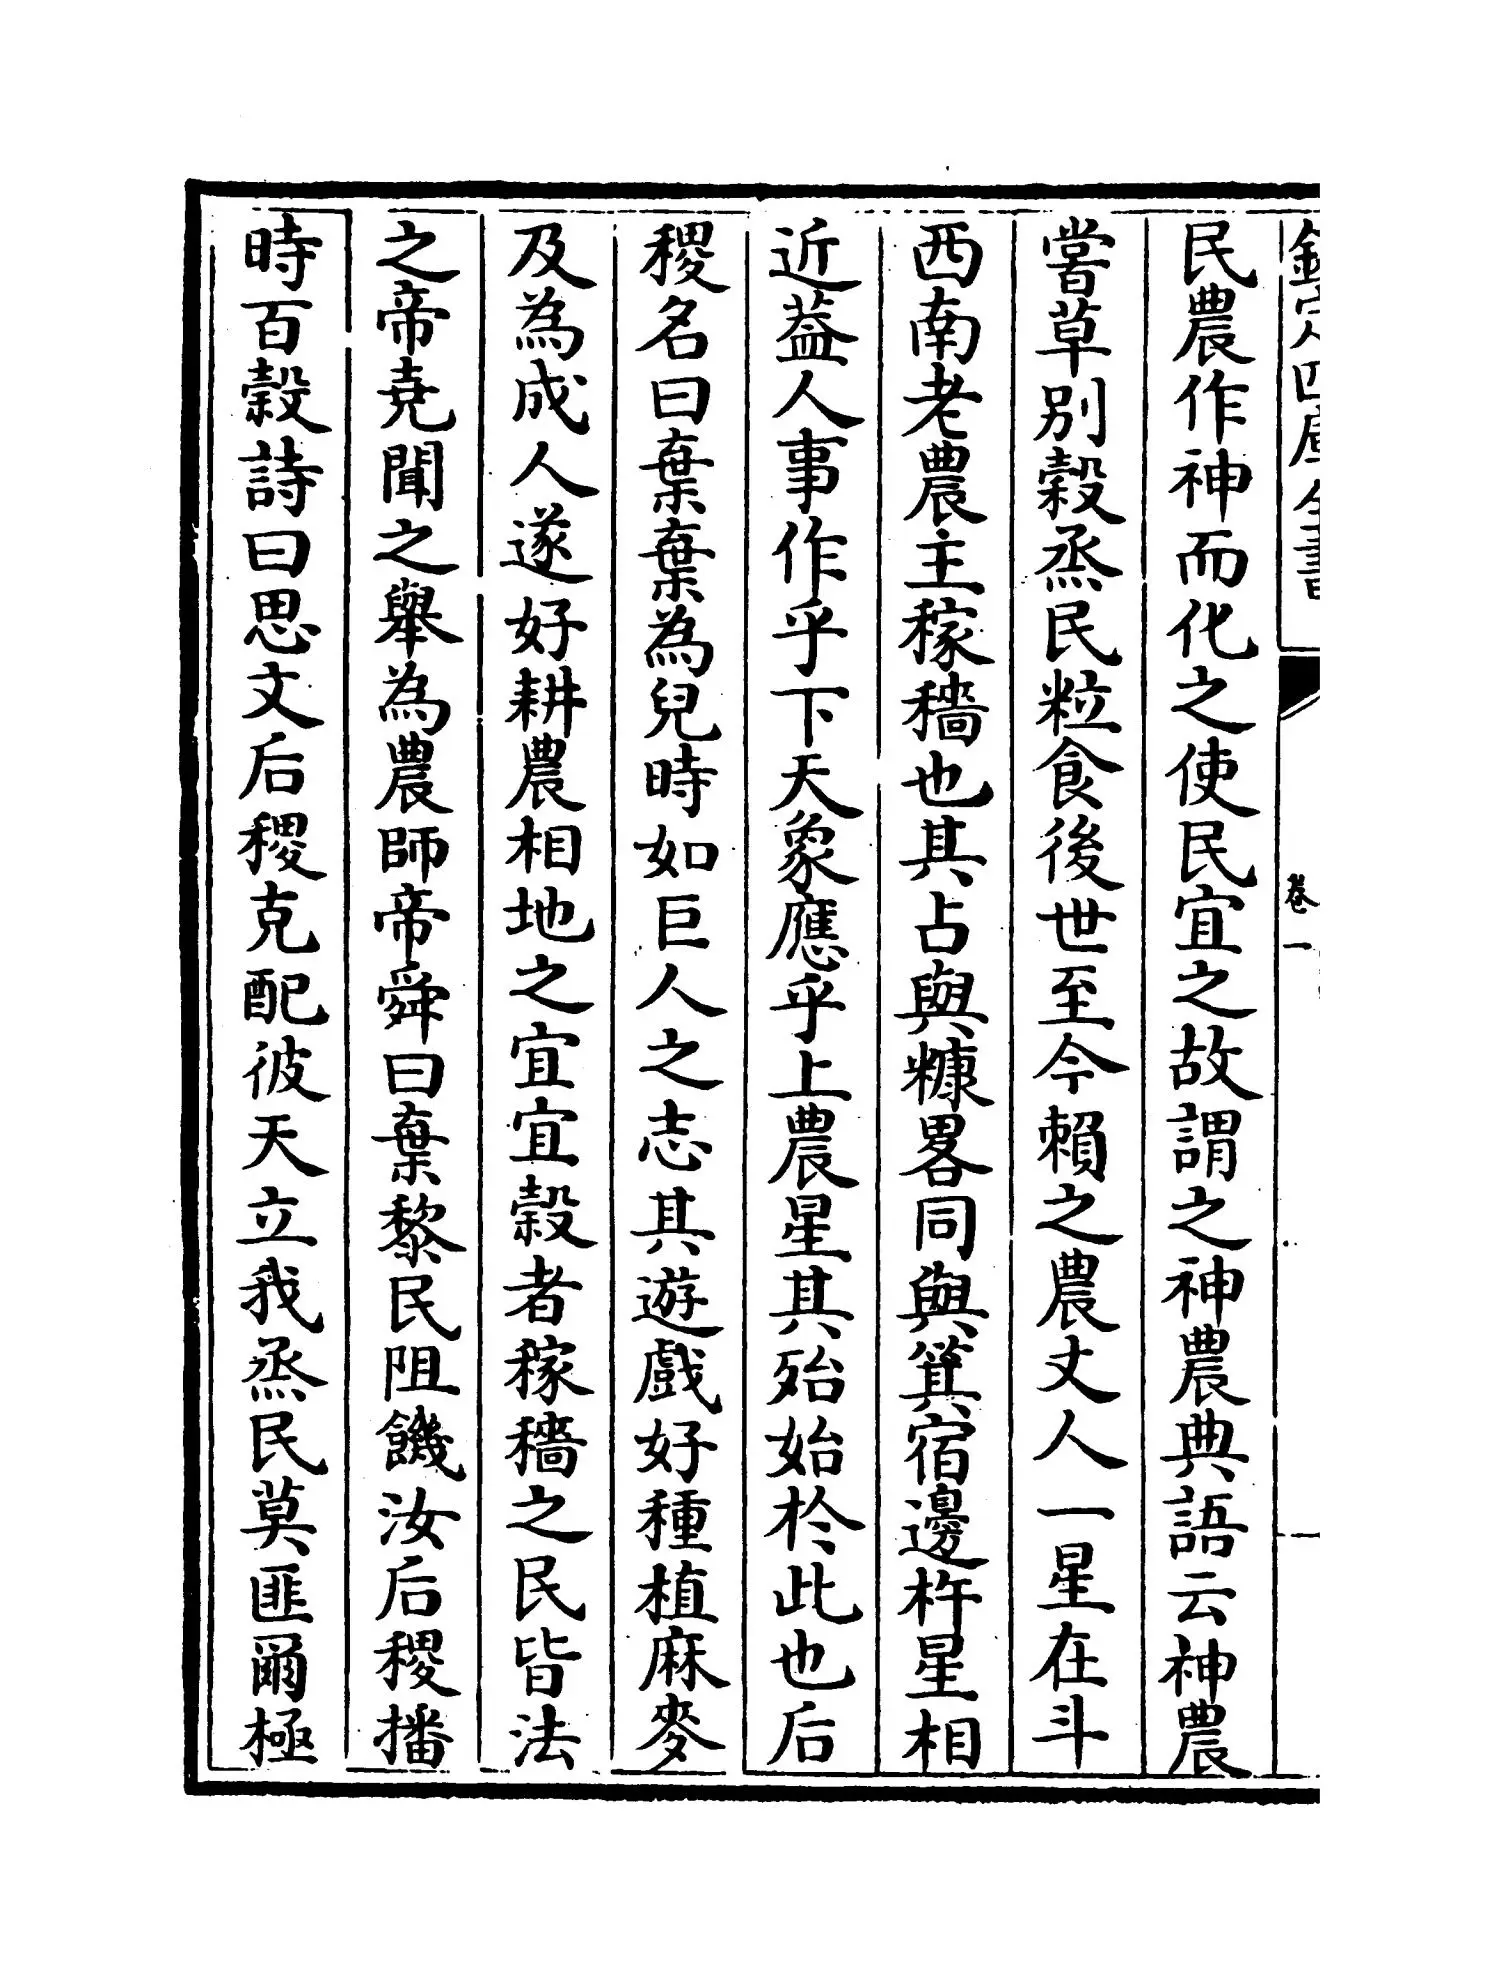 欽定四庫全書
卷一
民農作神而化之使民宜之故謂之神農典語云神農
嘗草别穀烝民粒食後世至今賴之農丈人一星在斗
西南老農主稼穡也其占與糠畧同與箕宿邊杵星相
近葢人事作乎下天象應乎上農星其殆始於此也后
稷名曰棄棄為兒時如巨人之志其遊戲好種植麻麥
及為成人遂好耕農相地之宜宜穀者稼穡之民皆法
之帝堯聞之舉為農師帝舜曰棄黎民阻饑汝后稷播
時百穀詩曰思文后稷克配彼天立我烝民莫匪爾極